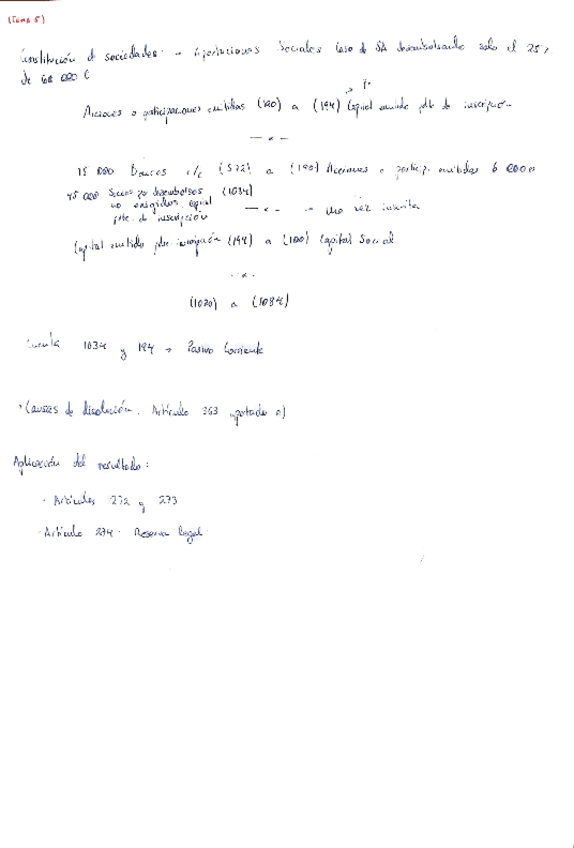 (Tema 5)
Constitución de sociedades: → Aportaciones Sociales Caso de SA desembolsando solo el 25%
de 60 000 €
Acciones o participaciones emitidas (190) a (194) Capital emitido pte de inscripción
15 000 Bancos c/c (572) a (190) Acciones o particip. emitidas 60000
45 000 Socios por desembolsos (1034)
no exigidos, capital
pte. de inscripción → una vez inscrita
Capital emitido pte inscripción (194) a (100) Capital Social
(1030) a (1034)
Cuenta 1034 y 194 → Pasivo Corriente
· Causas de disolución. Artículo 363 apartado e)
Aplicación del resultado:
· Artículos 272 y 273
· Artículo 274. Reserva legal.